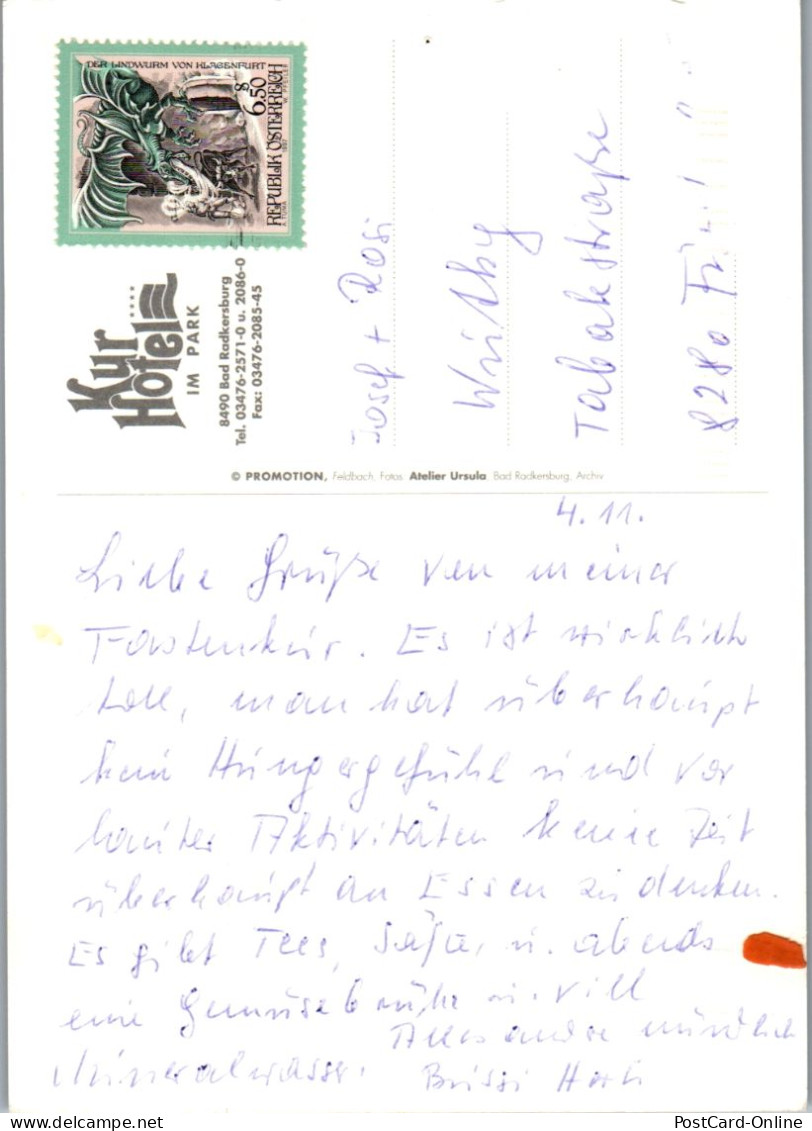 DER LINDWURM VON KLAGENFURT
S 6,50
REPUBLIK ÖSTERREICH
Kur
Hotel
IM PARK
8490 Bad Radkersburg
Tel. 03476-2571-0 u. 2086-0
Fax: 03476-2085-45
Josef + Rosi
Tabakstraße
8280
© PROMOTION, Feldbach, Fotos: Atelier Ursula, Bad Radkersburg, Archiv
4.11.
Liebe Grüße von meiner
Fastenkur. Es ist wirklich
toll, man hat überhaupt
kein Hungergefühl und vor
lauter Aktivitäten keine Zeit
überhaupt an Essen zu denken.
Es gibt Tees, Säfte, u. abends
eine Gemüsebrühe u. viel
Mineralwasser.
Alles andere mündlich
PostCard-Online